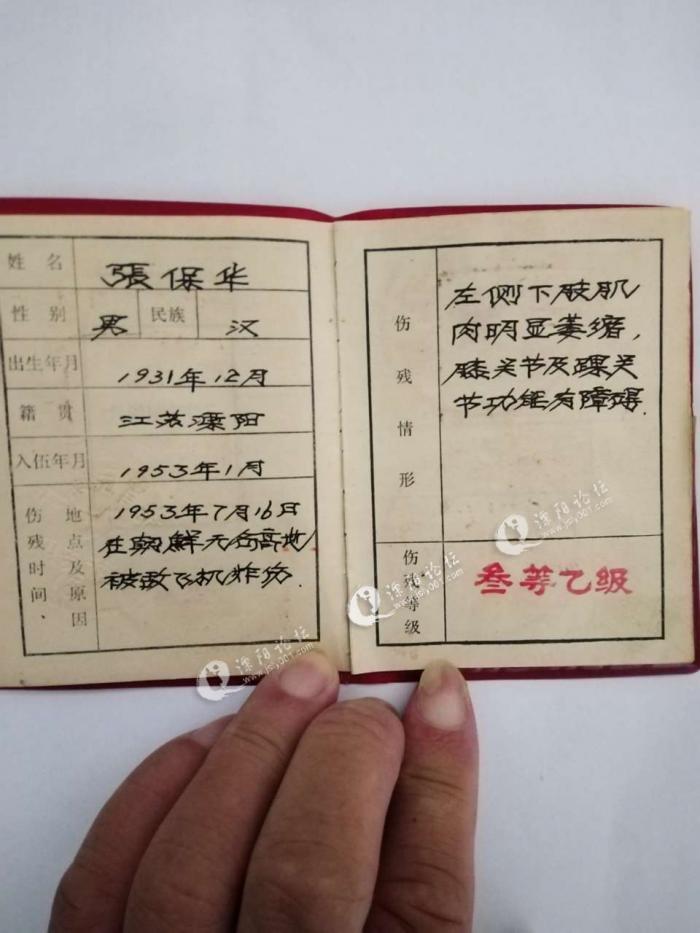 姓名
張保华
性别
男
民族
汉
出生年月
1931年12月
籍贯
江苏溧阳
入伍年月
1953年1月
伤残时间、地点及原因
1953年7月16日
在朝鲜无名高地
被敌飞机炸伤.
伤残情形
左侧下肢肌
肉明显萎缩,
膝关节及踝关
节功能有障碍.
伤残等级
叁等乙级
溧阳论坛
www.jsly001.com
溧阳论坛
www.jsly001.com
溧阳论坛
www.jsly001.com